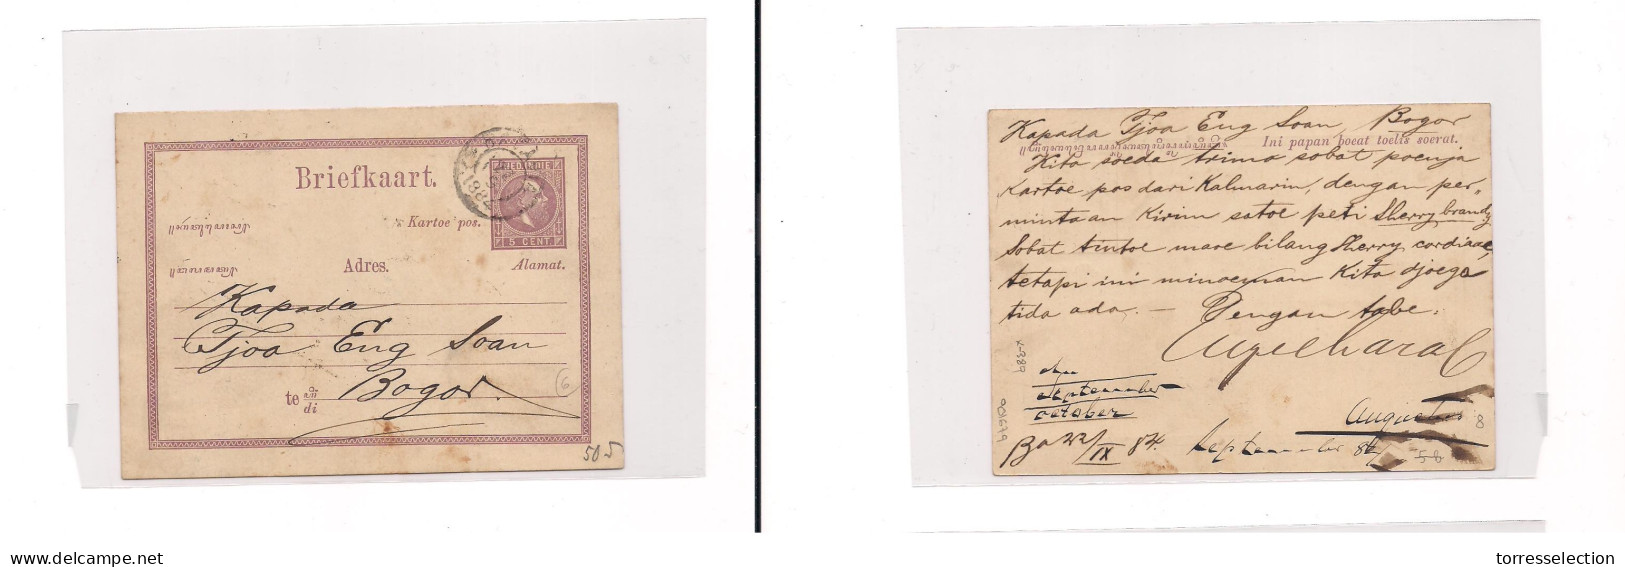 NED. INDIE
5 CENT
Briefkaart.
Kartoe pos.
Adres.
Alamat.
Kapada
Tjoa Eng Soan
te di Bogor.
6
50 5
Kapada Tjoa Eng Soan Bogor
Ini papan boeat toelis soerat.
Kita soeda trima sobat poenja
kartoe pos dari Kalmarin, dengan per„
mintaan Kirim satoe peti Sherry brandy
Sobat tintoe mace bilang Sherry cordiaal,
tetapi ini minoeman Kita djoega
tida ada. — Dengan tabe.
X-389
901679
September
october
Augustus
8
Ba 22/IX 84.
September 84
58
torresselection